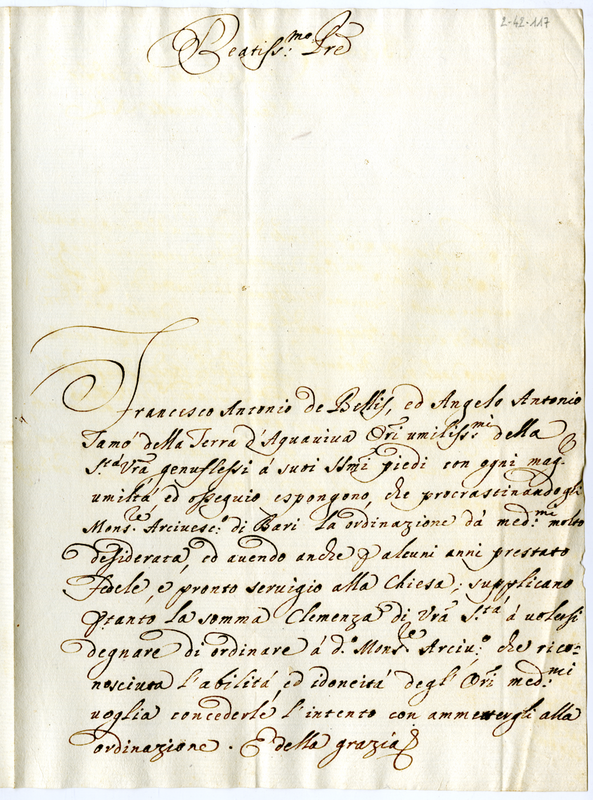 2-42-117
Beatiss:mo Pre
Francesco Antonio de Bellis, ed Angelo Antonio
Tamó della Terra d'Aquaviva Ori umiliss:mi della
S.tá Vra genuflessi á suoi Ssmi piedi con ogni mag.r
umiltá ed ossequio espongono, che procrastinandogli
Mons.re Arciuesc:o di Bari la ordinazione dá med:mi molto
desiderata, ed auendo anche p alcuni anni prestato
Fedele, e pronto seruigio alla Chiesa; supplicano
ptanto la somma Clemenza di Vra S.tá, á uolersi
degnare di ordinare á d.o Mons.re Arciu:o che rico-
nosciuta l'abilitá, ed idoneitá degl' Ori med:mi
uoglia concederle l'intento con ammettergli alla
ordinazione. E della grazia &